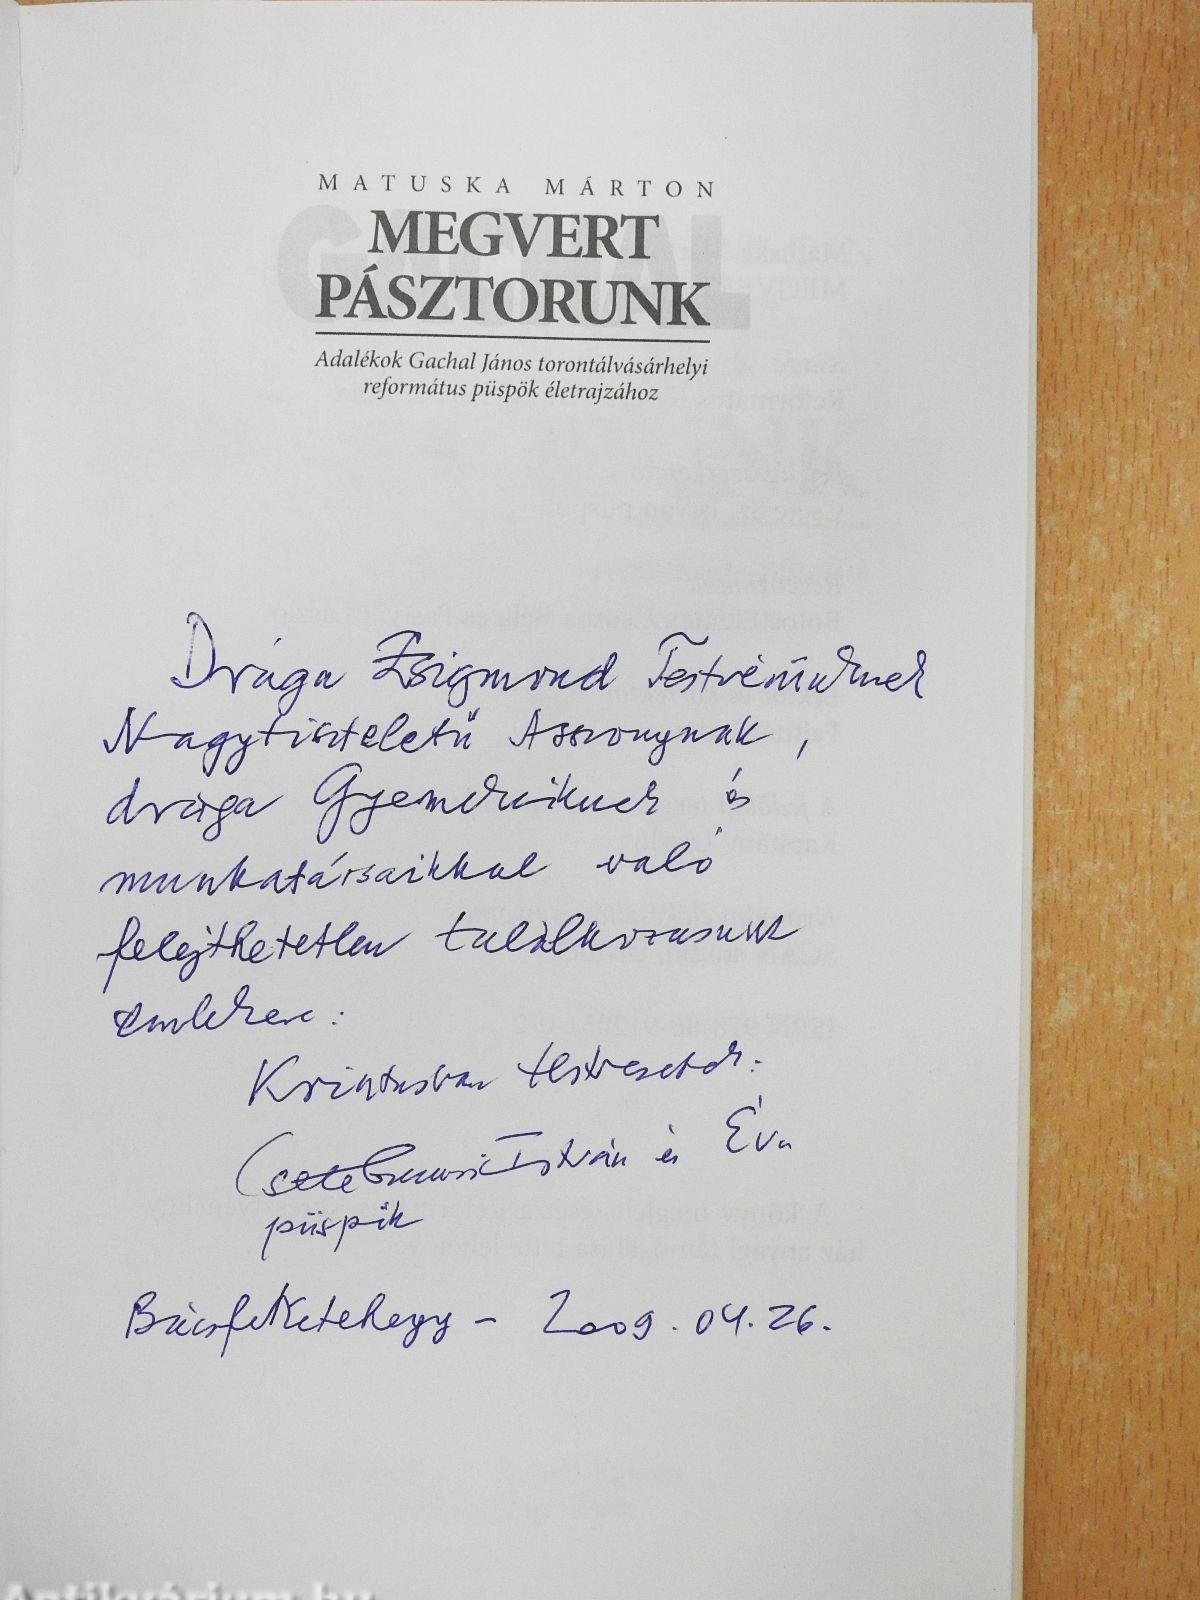 MATUSKA MÁRTON
MEGVERT
PÁSZTORUNK
Adalékok Gachal János torontálvásárhelyi
református püspök életrajzához
Drága Zsigmond Testvérünknek
Nagytiszteletű Asszonynak,
drága Gyermekeiknek és
munkatársaikkal való
felejthetetlen találkozásunk
emlékére:
Krisztusban testvéretek:
István és Éva
püspök
Bácsfeketehegy - 2009. 04. 26.
Antikvárium.hu